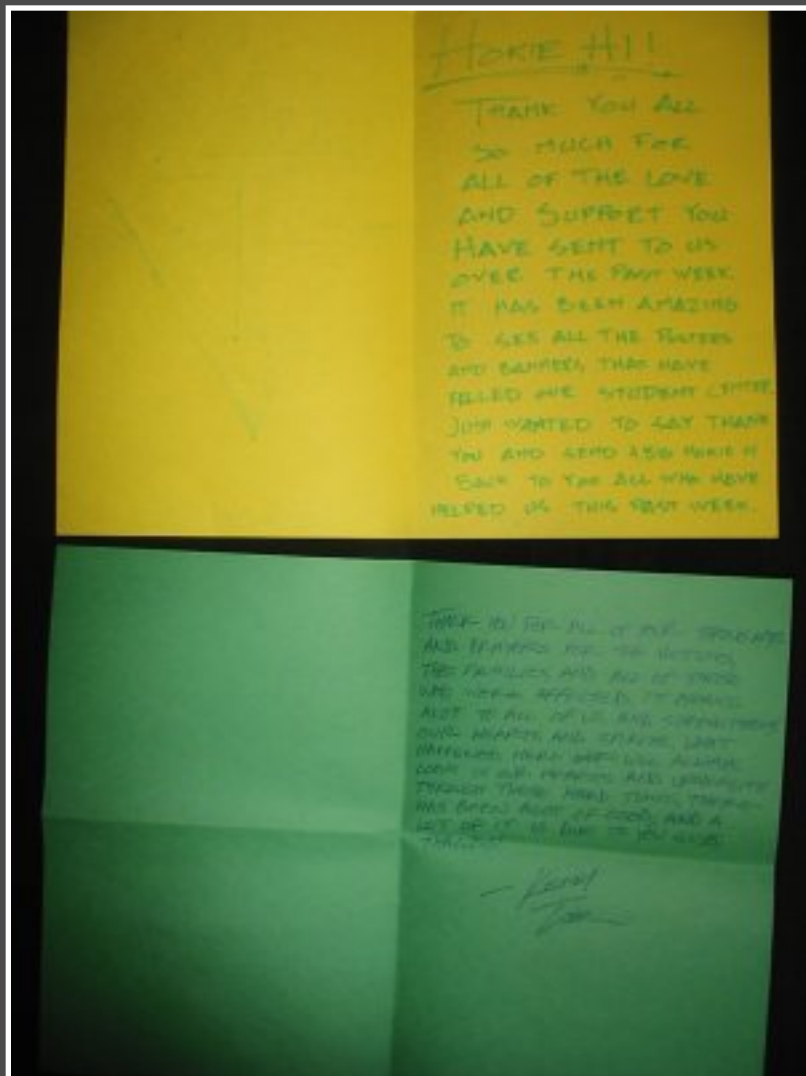 HOKIE HI!
THANK YOU ALL
SO MUCH FOR
ALL OF THE LOVE
AND SUPPORT YOU
HAVE SENT TO US
OVER THE PAST WEEK.
IT HAS BEEN AMAZING
TO SEE ALL THE POSTERS
AND BANNERS THAT HAVE
FILLED OUR STUDENT CENTER.
JUST WANTED TO SAY THANK
YOU AND SEND A BIG HOKIE HI
BACK TO YOU ALL WHO HAVE
HELPED US THIS PAST WEEK.
THANK YOU FOR ALL OF YOUR THOUGHTS
AND PRAYERS FOR THE VICTIMS,
THE FAMILIES AND ALL OF THOSE
WHO WERE AFFECTED. IT MEANS
ALOT TO ALL OF US AND
OUR HEARTS AND SPIRITS. WHAT
HAPPENED HERE WILL ALWAYS
IN OUR HEARTS AND
THROUGH THESE HARD TIMES, THERE
HAS BEEN ALOT OF GOOD, AND A
LOT OF IT IS DUE TO YOU